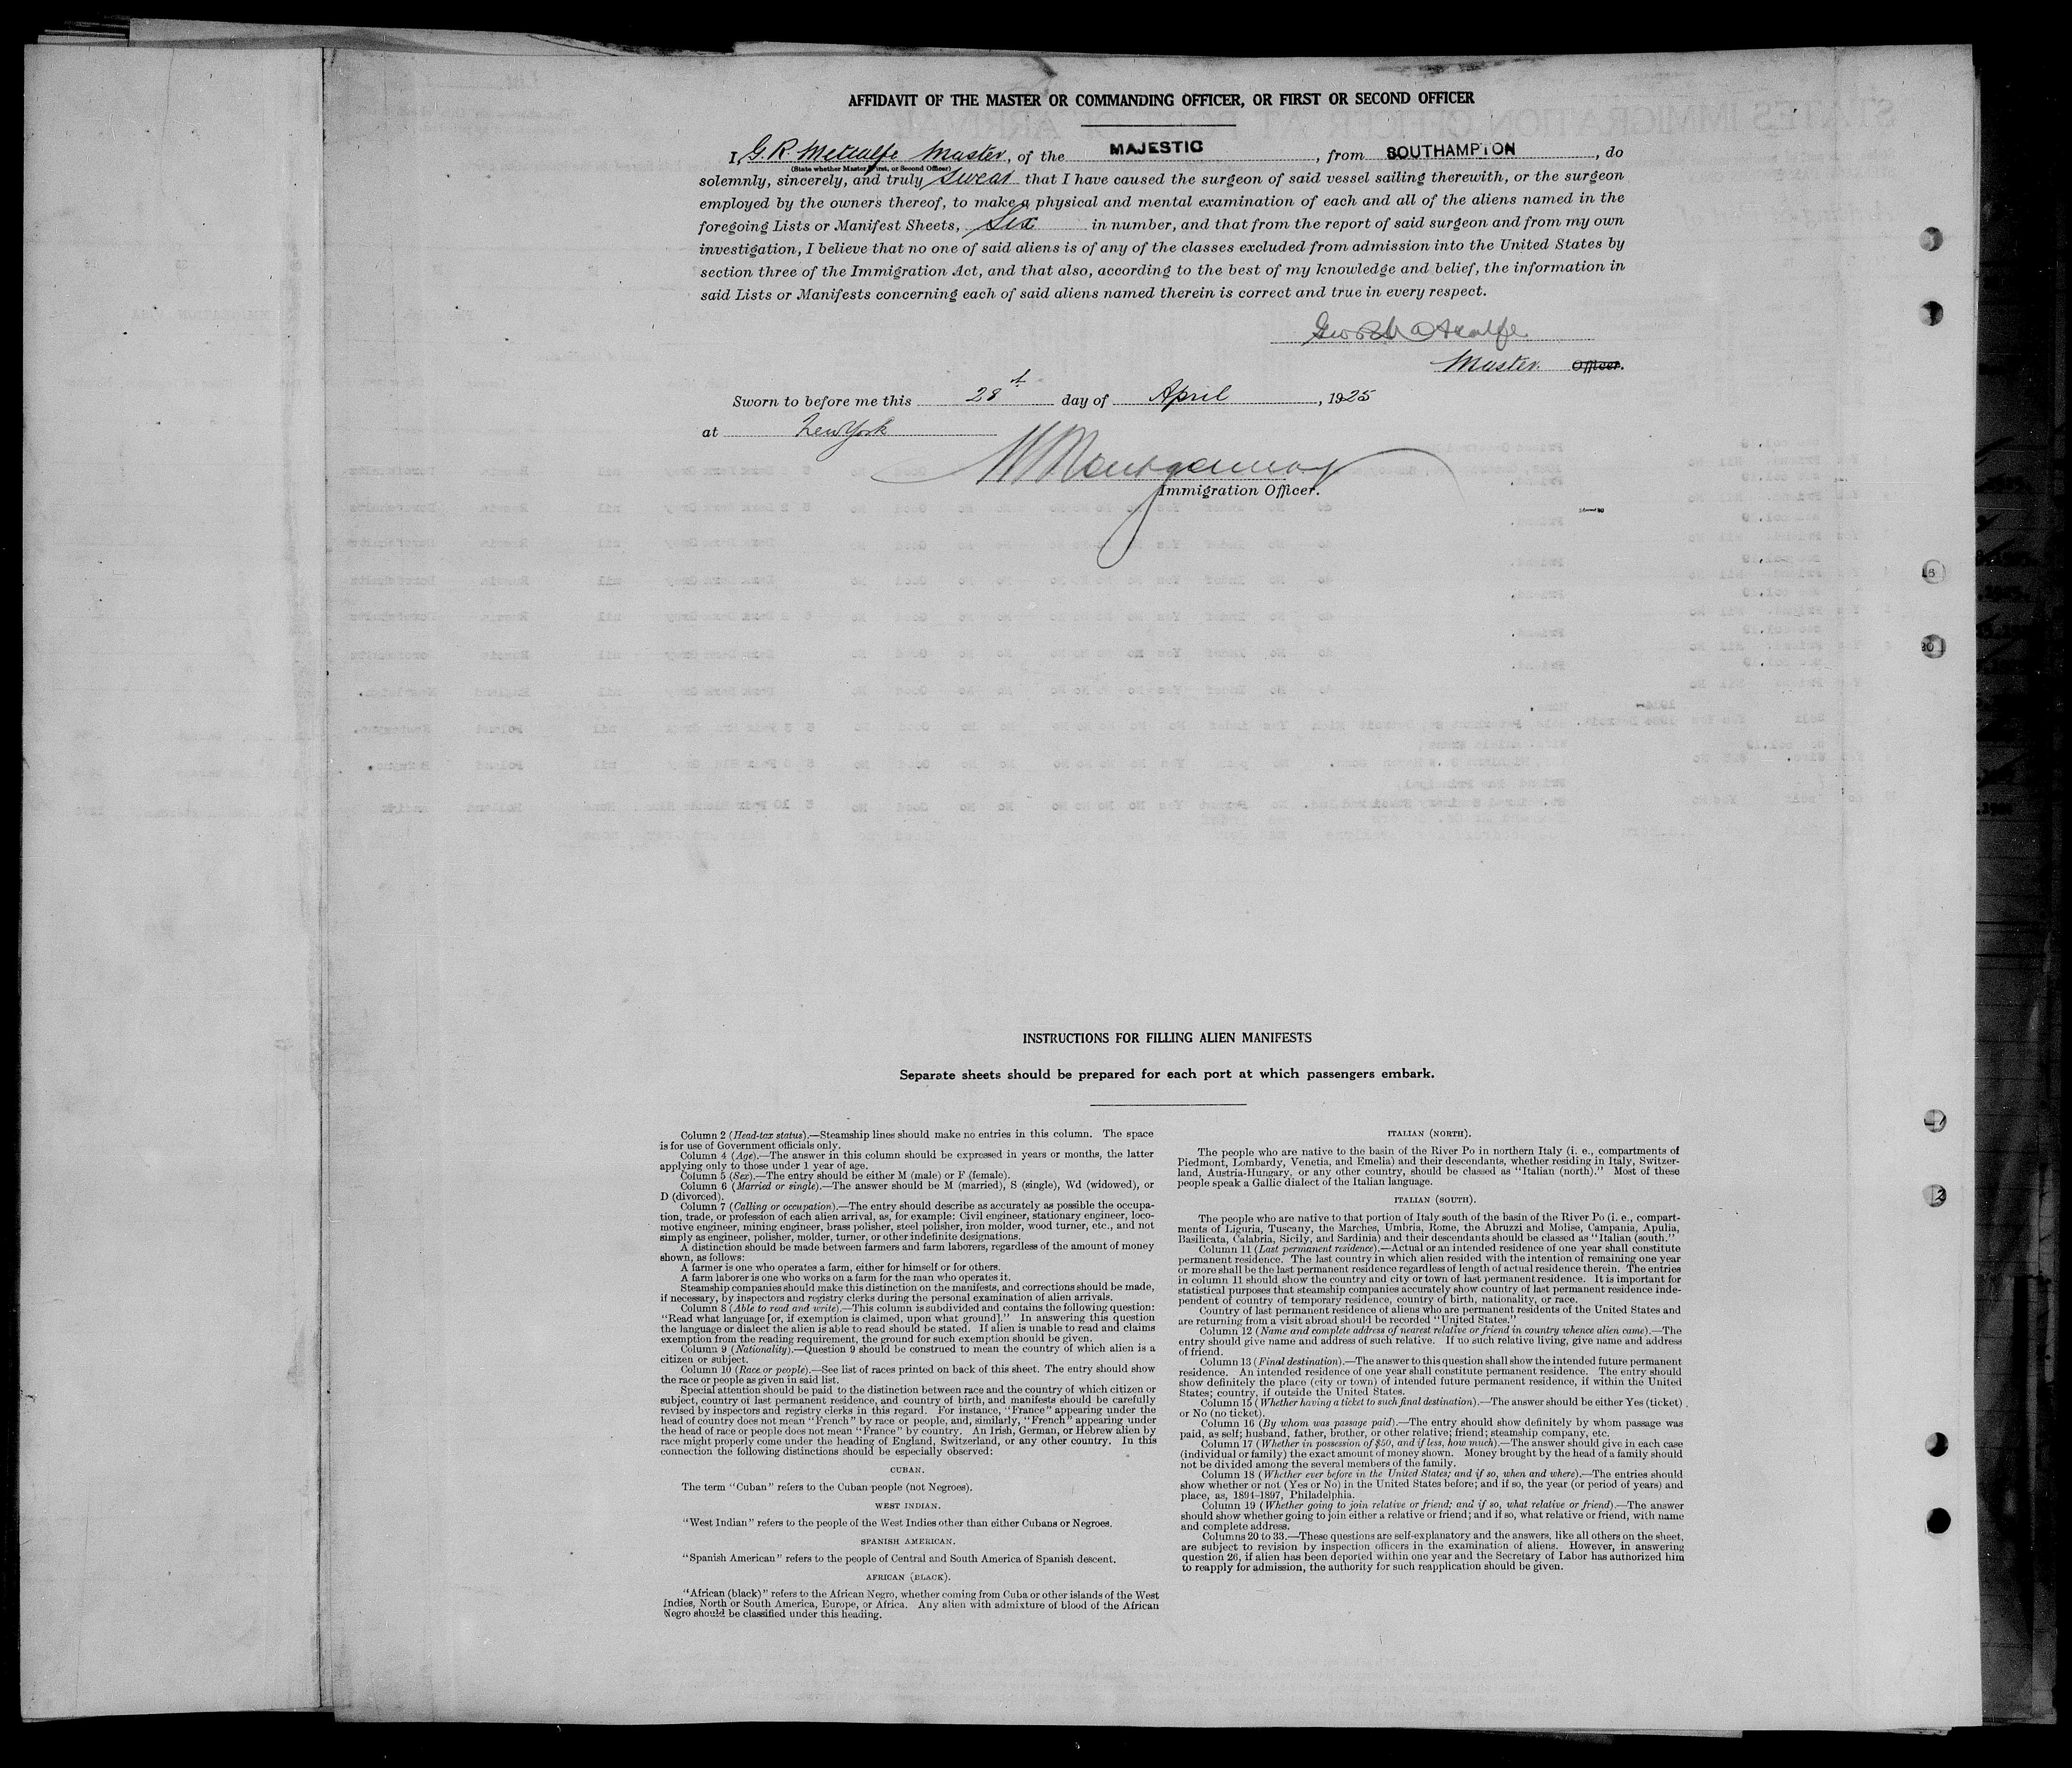 AFFIDAVIT OF THE MASTER OR COMMANDING OFFICER, OR FIRST OR SECOND OFFICER
I, G. R. Metcalfe Master, of the MAJESTIC, from SOUTHAMPTON, do
(State whether Master, First, or Second Officer)
solemnly, sincerely, and truly swear that I have caused the surgeon of said vessel sailing therewith, or the surgeon
employed by the owners thereof, to make a physical and mental examination of each and all of the aliens named in the
foregoing Lists or Manifest Sheets, Six in number, and that from the report of said surgeon and from my own
investigation, I believe that no one of said aliens is of any of the classes excluded from admission into the United States by
section three of the Immigration Act, and that also, according to the best of my knowledge and belief, the information in
said Lists or Manifests concerning each of said aliens named therein is correct and true in every respect.
Geo R Metcalfe
Master Officer.
Sworn to before me this 28th day of April, 1925
at New York
Montgomery
Immigration Officer.
INSTRUCTIONS FOR FILLING ALIEN MANIFESTS
Separate sheets should be prepared for each port at which passengers embark.
Column 2 (Head-tax status).—Steamship lines should make no entries in this column. The space
is for use of Government officials only.
Column 4 (Age).—The answer in this column should be expressed in years or months, the latter
applying only to those under 1 year of age.
Column 5 (Sex).—The entry should be either M (male) or F (female).
Column 6 (Married or single).—The answer should be M (married), S (single), Wd (widowed), or
D (divorced).
Column 7 (Calling or occupation).—The entry should describe as accurately as possible the occupa-
tion, trade, or profession of each alien arrival, as, for example: Civil engineer, stationary engineer, loco-
motive engineer, mining engineer, brass polisher, steel polisher, iron molder, wood turner, etc., and not
simply as engineer, polisher, molder, turner, or other indefinite designations.
A distinction should be made between farmers and farm laborers, regardless of the amount of money
shown, as follows:
A farmer is one who operates a farm, either for himself or for others.
A farm laborer is one who works on a farm for the man who operates it.
Steamship companies should make this distinction on the manifests, and corrections should be made,
if necessary, by inspectors and registry clerks during the personal examination of alien arrivals.
Column 8 (Able to read and write).—This column is subdivided and contains the following question:
"Read what language [or, if exemption is claimed, upon what ground]." In answering this question
the language or dialect the alien is able to read should be stated. If alien is unable to read and claims
exemption from the reading requirement, the ground for such exemption should be given.
Column 9 (Nationality).—Question 9 should be construed to mean the country of which alien is a
citizen or subject.
Column 10 (Race or people).—See list of races printed on back of this sheet. The entry should show
the race or people as given in said list.
Special attention should be paid to the distinction between race and the country of which citizen or
subject, country of last permanent residence, and country of birth, and manifests should be carefully
revised by inspectors and registry clerks in this regard. For instance, "France" appearing under the
head of country does not mean "French" by race or people, and, similarly, "French" appearing under
the head of race or people does not mean "France" by country. An Irish, German, or Hebrew alien by
race might properly come under the heading of England, Switzerland, or any other country. In this
connection the following distinctions should be especially observed:
CUBAN.
The term "Cuban" refers to the Cuban people (not Negroes).
WEST INDIAN.
"West Indian" refers to the people of the West Indies other than either Cubans or Negroes.
SPANISH AMERICAN.
"Spanish American" refers to the people of Central and South America of Spanish descent.
AFRICAN (BLACK).
"African (black)" refers to the African Negro, whether coming from Cuba or other islands of the West
Indies, North or South America, Europe, or Africa. Any alien with admixture of blood of the African
Negro should be classified under this heading.
ITALIAN (NORTH).
The people who are native to the basin of the River Po in northern Italy (i. e., compartments of
Piedmont, Lombardy, Venetia, and Emelia) and their descendants, whether residing in Italy, Switzer-
land, Austria-Hungary, or any other country, should be classed as "Italian (north)." Most of these
people speak a Gallic dialect of the Italian language.
ITALIAN (SOUTH).
The people who are native to that portion of Italy south of the basin of the River Po (i. e., compart-
ments of Liguria, Tuscany, the Marches, Umbria, Rome, the Abruzzi and Molise, Campania, Apulia,
Basilicata, Calabria, Sicily, and Sardinia) and their descendants should be classed as "Italian (south."
Column 11 (Last permanent residence).—Actual or an intended residence of one year shall constitute
permanent residence. The last country in which alien resided with the intention of remaining one year
or more shall be the last permanent residence regardless of length of actual residence therein. The entries
in column 11 should show the country and city or town of last permanent residence. It is important for
statistical purposes that steamship companies accurately show country of last permanent residence inde-
pendent of country of temporary residence, country of birth, nationality, or race.
Country of last permanent residence of aliens who are permanent residents of the United States and
are returning from a visit abroad should be recorded "United States."
Column 12 (Name and complete address of nearest relative or friend in country whence alien came).—The
entry should give name and address of such relative. If no such relative living, give name and address
of friend.
Column 13 (Final destination).—The answer to this question shall show the intended future permanent
residence. An intended residence of one year shall constitute permanent residence. The entry should
show definitely the place (city or town) of intended future permanent residence, if within the United
States; country, if outside the United States.
Column 15 (Whether having a ticket to such final destination).—The answer should be either Yes (ticket)
or No (no ticket).
Column 16 (By whom was passage paid).—The entry should show definitely by whom passage was
paid, as self; husband, father, brother, or other relative; friend; steamship company, etc.
Column 17 (Whether in possession of $50, and if less, how much).—The answer should give in each case
(individual or family) the exact amount of money shown. Money brought by the head of a family should
not be divided among the several members of the family.
Column 18 (Whether ever before in the United States; and if so, when and where).—The entries should
show whether or not (Yes or No) in the United States before; and if so, the year (or period of years) and
place, as, 1894-1897, Philadelphia.
Column 19 (Whether going to join relative or friend; and if so, what relative or friend).—The answer
should show whether going to join either a relative or friend; and if so, what relative or friend, with name
and complete address.
Columns 20 to 33.—These questions are self-explanatory and the answers, like all others on the sheet,
are subject to revision by inspection officers in the examination of aliens. However, in answering
question 26, if alien has been deported within one year and the Secretary of Labor has authorized him
to reapply for admission, the authority for such reapplication should be given.